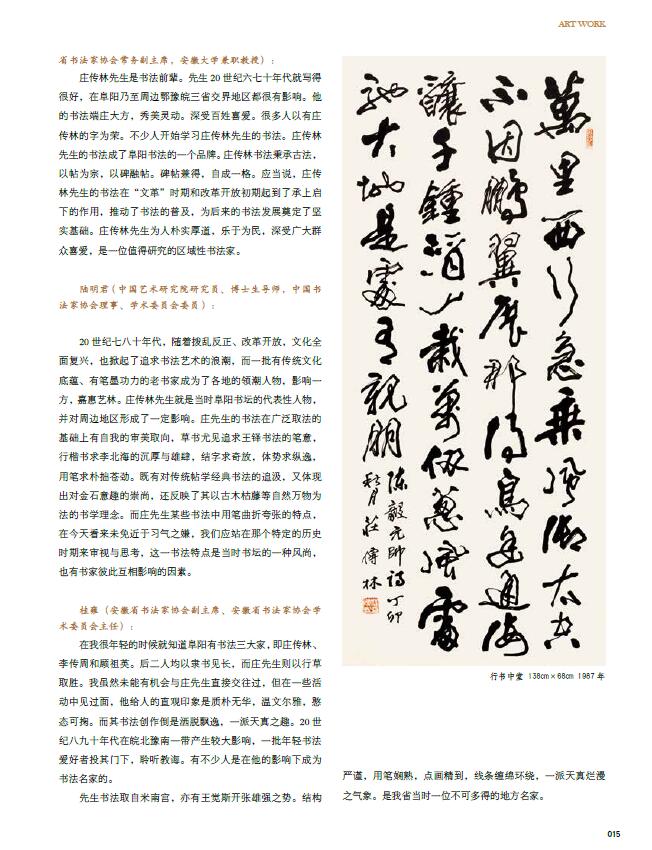 ART WORK
省书法家协会常务副主席，安徽大学兼职教授）：
庄传林先生是书法前辈。先生 20 世纪六七十年代就写得
很好，在阜阳乃至周边鄂豫皖三省交界地区都很有影响。他
的书法端庄大方，秀美灵动。深受百姓喜爱。很多人以有庄
传林的字为荣。不少人开始学习庄传林先生的书法。庄传林
先生的书法成了阜阳书法的一个品牌。庄传林书法秉承古法，
以帖为宗，以碑融帖。碑帖兼得，自成一格。应当说，庄传
林先生的书法在“文革”时期和改革开放初期起到了承上启
下的作用，推动了书法的普及，为后来的书法发展奠定了坚
实基础。庄传林先生为人朴实厚道，乐于为民，深受广大群
众喜爱，是一位值得研究的区域性书法家。
陆明君（中国艺术研究院研究员、博士生导师，中国书
法家协会理事、学术委员会委员）：
20 世纪七八十年代，随着拨乱反正、改革开放，文化全
面复兴，也掀起了追求书法艺术的浪潮，而一批有传统文化
底蕴、有笔墨功力的老书家成为了各地的领潮人物，影响一
方，嘉惠艺林。庄传林先生就是当时阜阳书坛的代表性人物，
并对周边地区形成了一定影响。庄先生的书法在广泛取法的
基础上有自我的审美取向，草书尤见追求王铎书法的笔意，
行楷书求李北海的沉厚与雄肆，结字求奇放，体势求纵逸，
用笔求朴拙苍劲。既有对传统帖学经典书法的追汲，又体现
出对金石意趣的崇尚，还反映了其以古木枯藤等自然万物为
法的书学理念。而庄先生某些书法中用笔曲折夸张的特点，
在今天看来未免近于习气之嫌，我们应站在那个特定的历史
时期来审视与思考，这一书法特点是当时书坛的一种风尚，
也有书家彼此互相影响的因素。
桂雍（安徽省书法家协会副主席、安徽省书法家协会学
术委员会主任）：
在我很年轻的时候就知道阜阳有书法三大家，即庄传林、
李传周和顾祖英。后二人均以隶书见长，而庄先生则以行草
取胜。我虽然未能有机会与庄先生直接交往过，但在一些活
动中见过面，他给人的直观印象是质朴无华，温文尔雅，憨
态可掬。而其书法创作倒是洒脱飘逸，一派天真之趣。20 世
纪八九十年代在皖北豫南一带产生较大影响，一批年轻书法
爱好者投其门下，聆听教诲。有不少人是在他的影响下成为
书法名家的。
先生书法取自米南宫，亦有王觉斯开张雄强之势。结构
萬里西行急乘風御太空
不因鵬翼展那得鳥途通海
釀千鍾酒山栽萬仞蔥風雷
馳大地是處有親朋
陳毅元帥詩丁卯
秋月莊傳林
行书中堂 138cm×68cm 1987 年
严谨，用笔娴熟，点画精到，线条缠绵环绕，一派天真烂漫
之气象。是我省当时一位不可多得的地方名家。
015